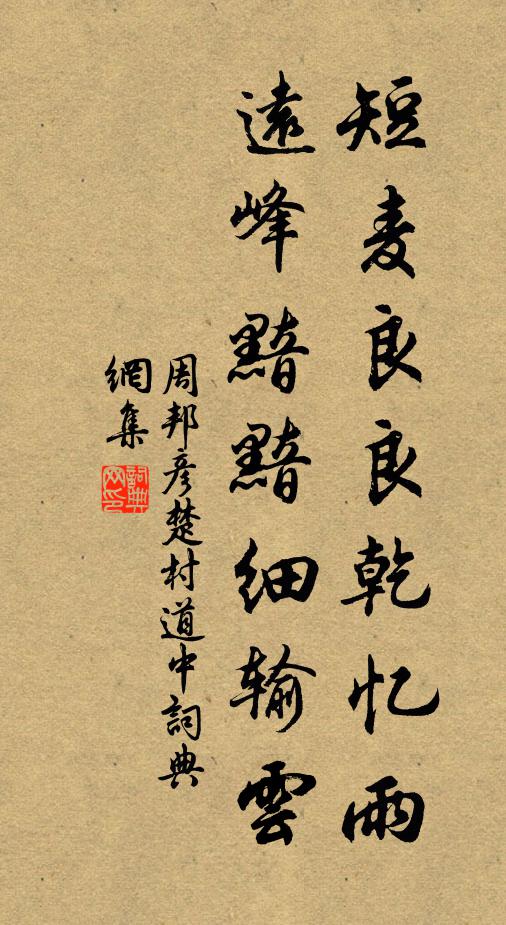 短麦良良乾忆雨
遠峰黯黯细输雲
周邦彦楚村道中詞典
網集
詞典网印